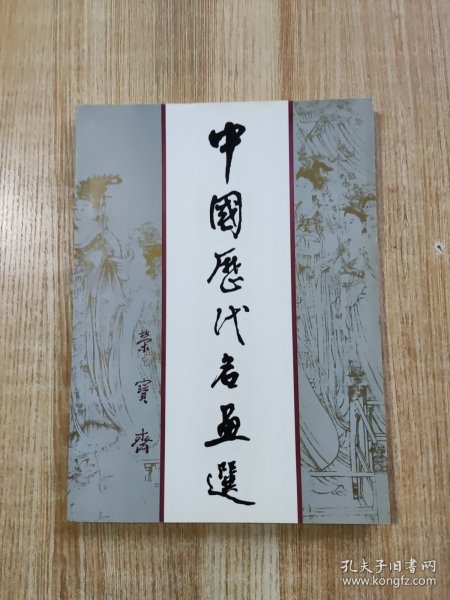 中國歷代名畫選
榮寶齋
孔夫子旧书网
www.kongfz.com